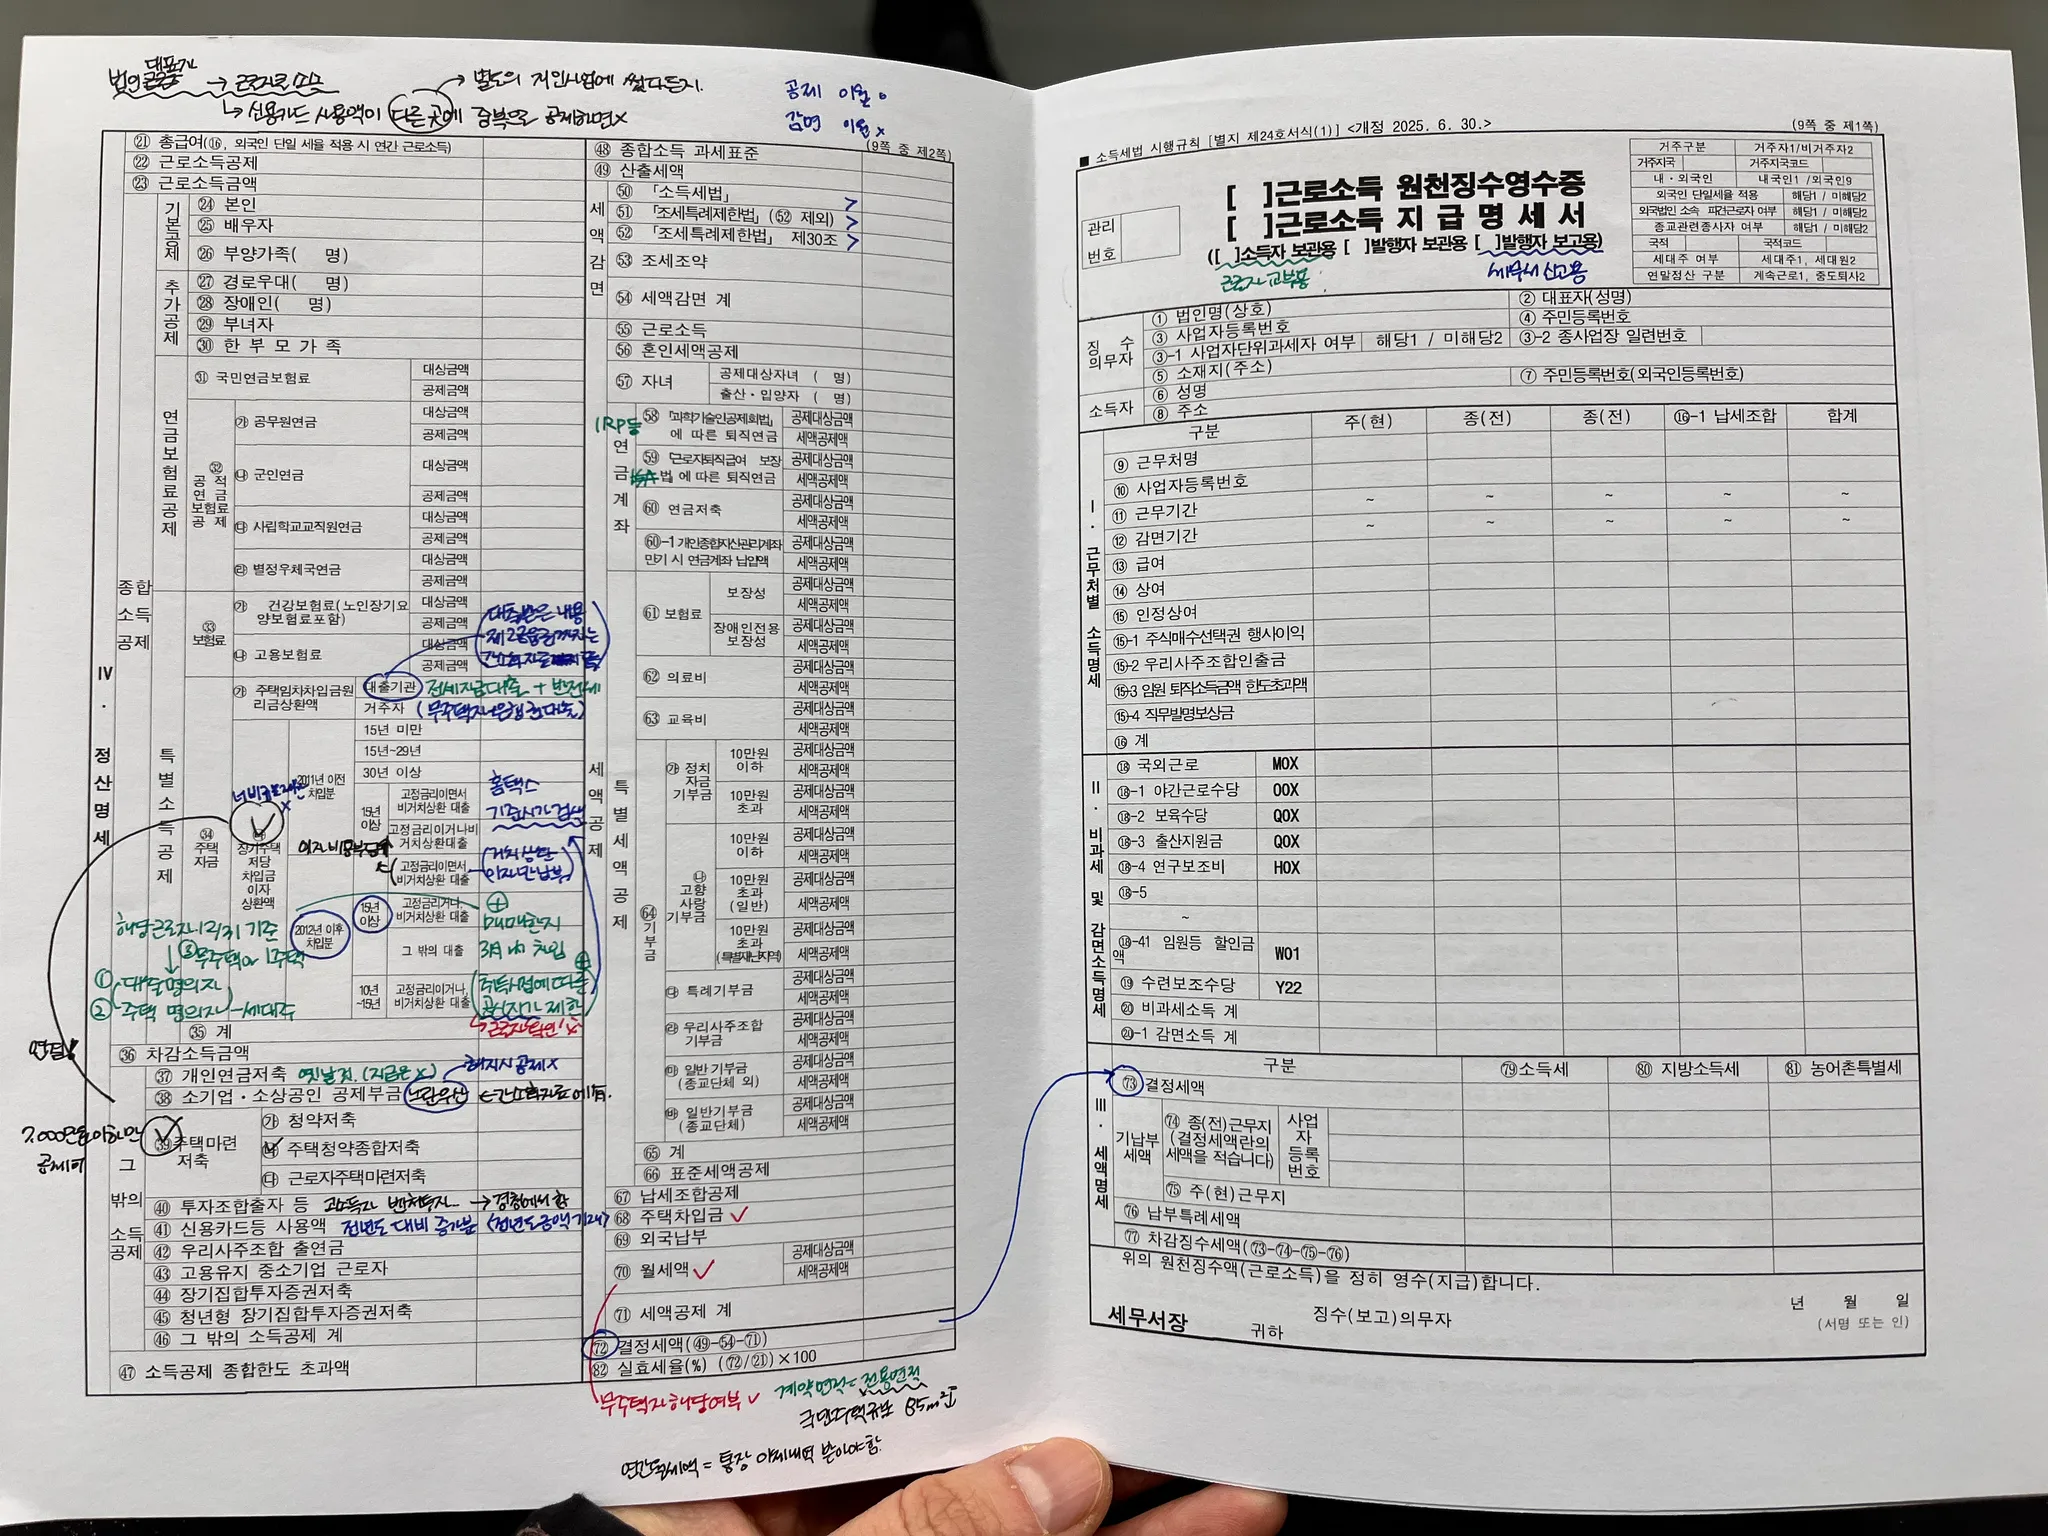 대표가
법인 → 근로자로
→ 별도의 개인사업에 썼다든지.
↳ 신용카드 사용액이 다른 곳에 중복으로 공제하면 x
공제 이월 o
감면 이월 x
(9쪽 중 제2쪽)
㉑ 총급여(⑯, 외국인 단일 세율 적용 시 연간 근로소득)
㉒ 근로소득공제
㉓ 근로소득금액
Ⅳ. 정산명세
종합소득공제
기본공제
㉔ 본인
㉕ 배우자
㉖ 부양가족( 명)
추가공제
㉗ 경로우대( 명)
㉘ 장애인( 명)
㉙ 부녀자
㉚ 한부모가족
연금보험료공제
㉛ 국민연금보험료 대상금액
공제금액
㉜ 공적연금보험료 공제
㉮ 공무원연금 대상금액
공제금액
㉯ 군인연금 대상금액
공제금액
㉰ 사립학교교직원연금 대상금액
공제금액
㉱ 별정우체국연금 대상금액
공제금액
특별소득공제
㉝ 보험료
㉮ 건강보험료(노인장기요양보험료포함) 대상금액
공제금액
㉯ 고용보험료 대상금액
공제금액
대출받은 내용
제2금융권까지는
㉞ 주택자금
㉮ 주택임차차입금 원리금상환액 대출기관
거주자
전세자금대출 + 반전세
㉯ 장기주택저당차입금 이자상환액
2011년 이전 차입분
15년 미만
15년~29년
30년 이상
2012년 이후 차입분
15년 이상
고정금리이면서 비거치상환 대출
고정금리이거나 비거치상환 대출
고정금리이면서 비거치상환 대출
고정금리거나, 비거치상환 대출
그 밖의 대출
10년~15년
고정금리이거나, 비거치상환 대출
홈택스
기준시가 검색
거치상환
이자만 납부
⊕
매매한지
3月 内 차입
⊕
취득시점에 따른
공시지가 제한
해당근로자 12/31 기준
③ 무주택 or 1주택
① 대출명의자
② 주택 명의자 - 세대주
㉟ 계
㊱ 차감소득금액
그 밖의 소득공제
㊲ 개인연금저축 옛날것. (지금은 x)
해지시 공제 x
㊳ 소기업·소상공인 공제부금 노란우산 ← 간소화자료에 有.
7,000만원 이하만
공제여
㊴ 주택마련저축
㉮ 청약저축
㉯ 주택청약종합저축
㉰ 근로자주택마련저축
㊵ 투자조합출자 등 고소득자 벤처투자
㊶ 신용카드등 사용액 전년도 대비 증가분 (전년도금액 기재)
㊷ 우리사주조합 출연금
㊸ 고용유지 중소기업 근로자
㊹ 장기집합투자증권저축
㊺ 청년형 장기집합투자증권저축
㊻ 그 밖의 소득공제 계
㊼ 소득공제 종합한도 초과액
㊽ 종합소득 과세표준
㊾ 산출세액
세액감면
㊿ 「소득세법」 >
51 「조세특례제한법」(52 제외) >
52 「조세특례제한법」 제30조 >
53 조세조약
54 세액감면 계
세액공제
55 근로소득
56 혼인세액공제
57 자녀
공제대상자녀 ( 명)
출산·입양자 ( 명)
연금계좌
IRP등
58 「과학기술인공제회법」에 따른 퇴직연금 공제대상금액
세액공제액
59 「근로자퇴직급여 보장법」에 따른 퇴직연금 공제대상금액
세액공제액
60 연금저축 공제대상금액
세액공제액
60-1 개인종합자산관리계좌 만기 시 연금계좌 납입액 공제대상금액
세액공제액
특별세액공제
61 보험료
보장성 공제대상금액
세액공제액
장애인전용보장성 공제대상금액
세액공제액
62 의료비 공제대상금액
세액공제액
63 교육비 공제대상금액
세액공제액
64 기부금
㉮ 정치자금기부금
10만원 이하 공제대상금액
세액공제액
10만원 초과 공제대상금액
세액공제액
㉯ 고향사랑기부금
10만원 이하 공제대상금액
세액공제액
10만원 초과(일반) 공제대상금액
세액공제액
10만원 초과(특별재난지역) 공제대상금액
세액공제액
㉰ 특례기부금 공제대상금액
세액공제액
㉱ 우리사주조합기부금 공제대상금액
세액공제액
㉲ 일반기부금(종교단체 외) 공제대상금액
세액공제액
㉳ 일반기부금(종교단체) 공제대상금액
세액공제액
65 계
66 표준세액공제
67 납세조합공제
68 주택차입금 ✓
69 외국납부
70 월세액 ✓ 공제대상금액
세액공제액
71 세액공제 계
72 결정세액(49-54-71)
82 실효세율(%) (72/21)×100
무주택자 해당여부 ✓
계약면적 = 전용면적
국민주택규모 85m²
연간월세액 = 통장 이체내역 받아야함.
■ 소득세법 시행규칙 [별지 제24호서식(1)] <개정 2025. 6. 30.>
(9쪽 중 제1쪽)
관리번호
[ ]근로소득 원천징수영수증
[ ]근로소득 지급명세서
([ ]소득자 보관용 [ ]발행자 보관용 [ ]발행자 보고용)
근로자 교부용
세무서 신고용
거주구분 거주자1/비거주자2
거주지국 거주지국코드
내·외국인 내국인1 /외국인9
외국인 단일세율 적용 해당1 / 미해당2
외국법인 소속 파견근로자 여부 해당1 / 미해당2
종교관련종사자 여부 해당1 / 미해당2
국적 국적코드
세대주 여부 세대주1, 세대원2
연말정산 구분 계속근로1, 중도퇴사2
징수의무자
① 법인명(상호) ② 대표자(성명)
③ 사업자등록번호 ④ 주민등록번호
③-1 사업자단위과세자 여부 해당1 / 미해당2 ③-2 종사업장 일련번호
⑤ 소재지(주소)
소득자
⑥ 성명 ⑦ 주민등록번호(외국인등록번호)
⑧ 주소
구분 주(현) 종(전) 종(전) ⑯-1 납세조합 합계
Ⅰ. 근무처별 소득명세
⑨ 근무처명
⑩ 사업자등록번호
⑪ 근무기간 ~ ~ ~ ~ ~
⑫ 감면기간 ~ ~ ~ ~ ~
⑬ 급여
⑭ 상여
⑮ 인정상여
⑮-1 주식매수선택권 행사이익
⑮-2 우리사주조합인출금
⑮-3 임원 퇴직소득금액 한도초과액
⑮-4 직무발명보상금
⑯ 계
Ⅱ. 비과세 및 감면소득명세
⑱ 국외근로 M0X
⑱-1 야간근로수당 O0X
⑱-2 보육수당 Q0X
⑱-3 출산지원금 Q0X
⑱-4 연구보조비 H0X
⑱-5
~
⑱-41 임원등 할인금액 W01
⑲ 수련보조수당 Y22
⑳ 비과세소득 계
⑳-1 감면소득 계
Ⅲ. 세액명세
구분 79 소득세 80 지방소득세 81 농어촌특별세
73 결정세액
기납부세액
74 종(전)근무지 (결정세액란의 세액을 적습니다) 사업자등록번호
75 주(현)근무지
76 납부특례세액
77 차감징수세액(73-74-75-76)
위의 원천징수액(근로소득)을 정히 영수(지급)합니다.
년 월 일
징수(보고)의무자 (서명 또는 인)
세무서장 귀하